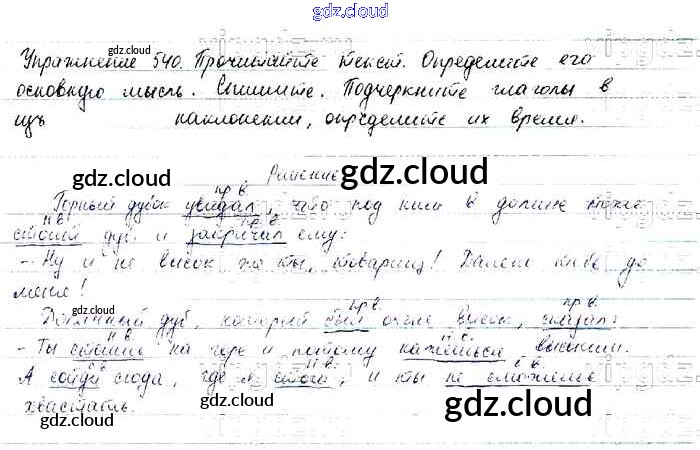 gdz.cloud
gdz.cloud gdz.cloud
Упражнение 540. Прочитайте текст. Определите его
основную мысль. Спишите. Подчеркните глаголы в
наклонении, определите их время.
gdz.cloud
Решение
gdz.cloud
пр. в.
Горный дубок увидал, что под ним в долине тоже
н. в. пр. в.
стоит дуб и закричал ему:
- Ну и не высок же ты, товарищ! Далеко тебе до
меня!
gdz.cloud
пр. в. пр. в.
Долинный дуб, который был очень высок, сказал:
н. в. н. в.
- Ты стоишь на горе и потому кажешься высоким.
н. в. б. в.
А сойди сюда, где я стою, и ты не сможешь
хвастать.
gdz.cloud
gdz.cloud